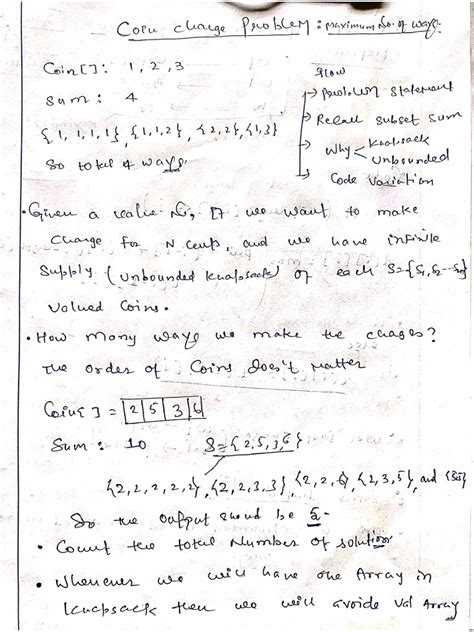 Coin change Problem : Maximum No. of ways.
Coin[] : 1, 2, 3
Sum : 4
{1, 1, 1, 1}, {1, 1, 2}, {2, 2}, {1, 3}
So total 4 ways.
Flow
→ Problem Statement
→ Recall subset sum
→ Why < Knapsack
Unbounded
Code Variation
• Given a value N, If we want to make
change for N cents, and we have infinite
Supply (Unbounded Knapsack) of each S={S1, S2, ... Sm}
valued Coins.
• How many ways we make the changes?
The order of Coins does't matter
Coin[] = 2 5 3 6
Sum : 10 S = {2, 5, 3, 6}
{2, 2, 2, 2, 2}, {2, 2, 3, 3}, {2, 2, 6}, {2, 3, 5}, and {5,5}
So the output should be 5.
• Count the total Number of solution
• Whenever we will have one Array in
knapsack then we will avoide val Array